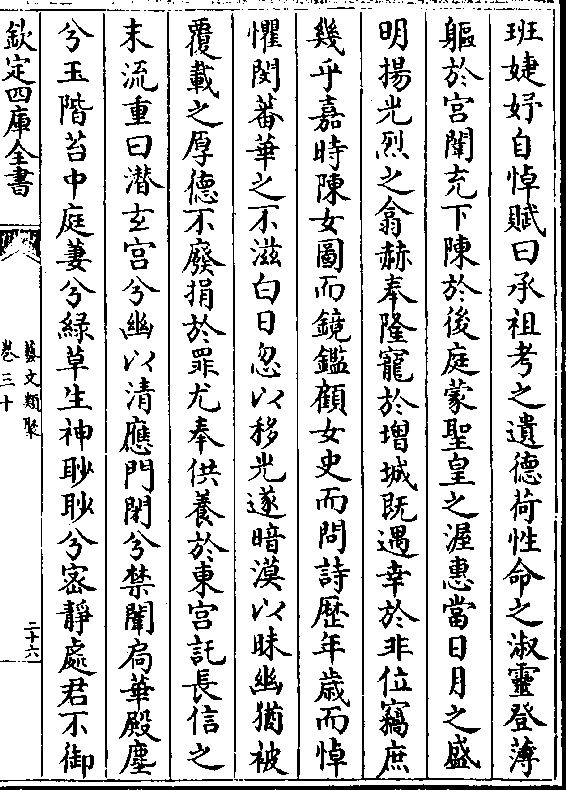 班婕妤自悼賦曰承祖考之遺德荷性命之淑靈登薄
軀於宮闈充下陳於後庭蒙聖皇之渥惠當日月之盛
明揚光烈之翕赫奉隆寵於增城既遇幸於非位竊庶
幾乎嘉時陳女圖而鏡鑑顧女史而問詩歴年歳而悼
懼閔蕃華之不滋白日忽以移光遂暗漠以昧幽猶被
覆載之厚德不廢捐於罪尤奉供養於東宮託長信之
末流重曰潜玄宮兮幽以清應門閉兮禁闈扄華殿塵
兮玉階苔中庭萋兮緑草生神眇眇兮密靜處君不御
欽定四庫全書
藝文類聚
卷三十
二十六